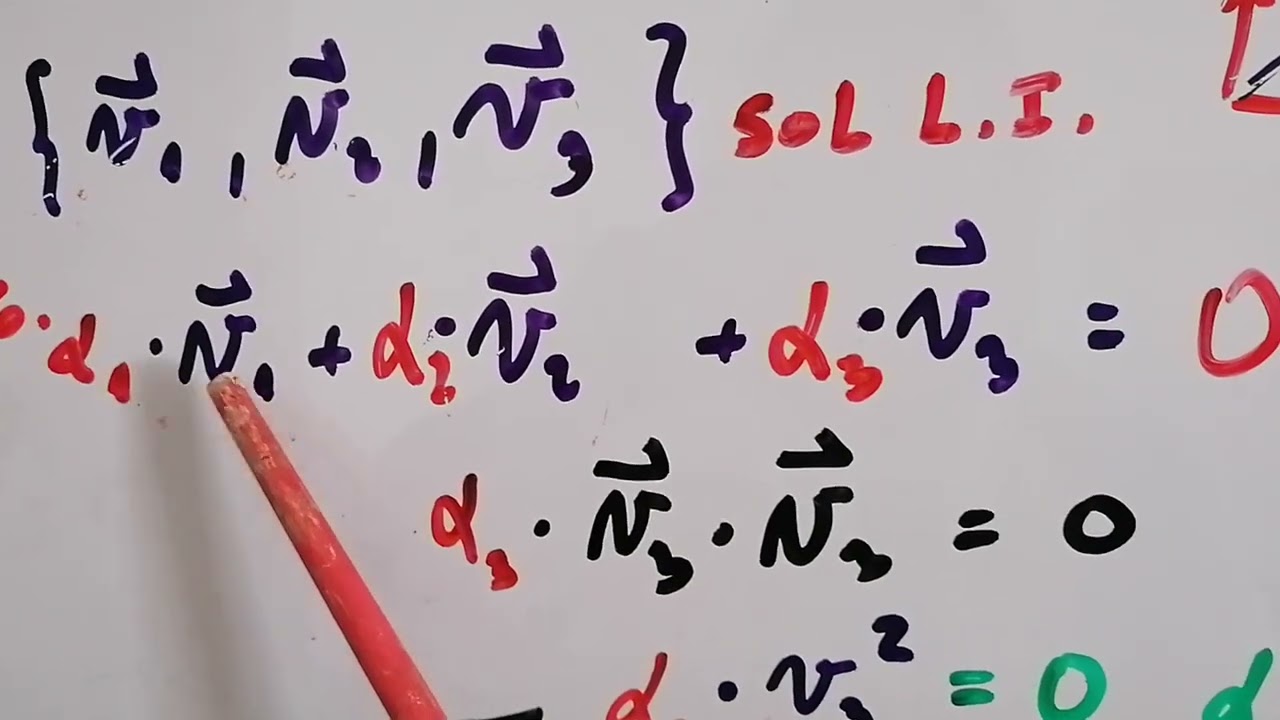 { v⃗₁ , v⃗₂ , v⃗₃ } SOL L.I.
· α₁ · v⃗₁ + α₂ · v⃗₂ + α₃ · v⃗₃ = 0
α₃ · v⃗₃ · v⃗₃ = 0
α · v₃² = 0 α